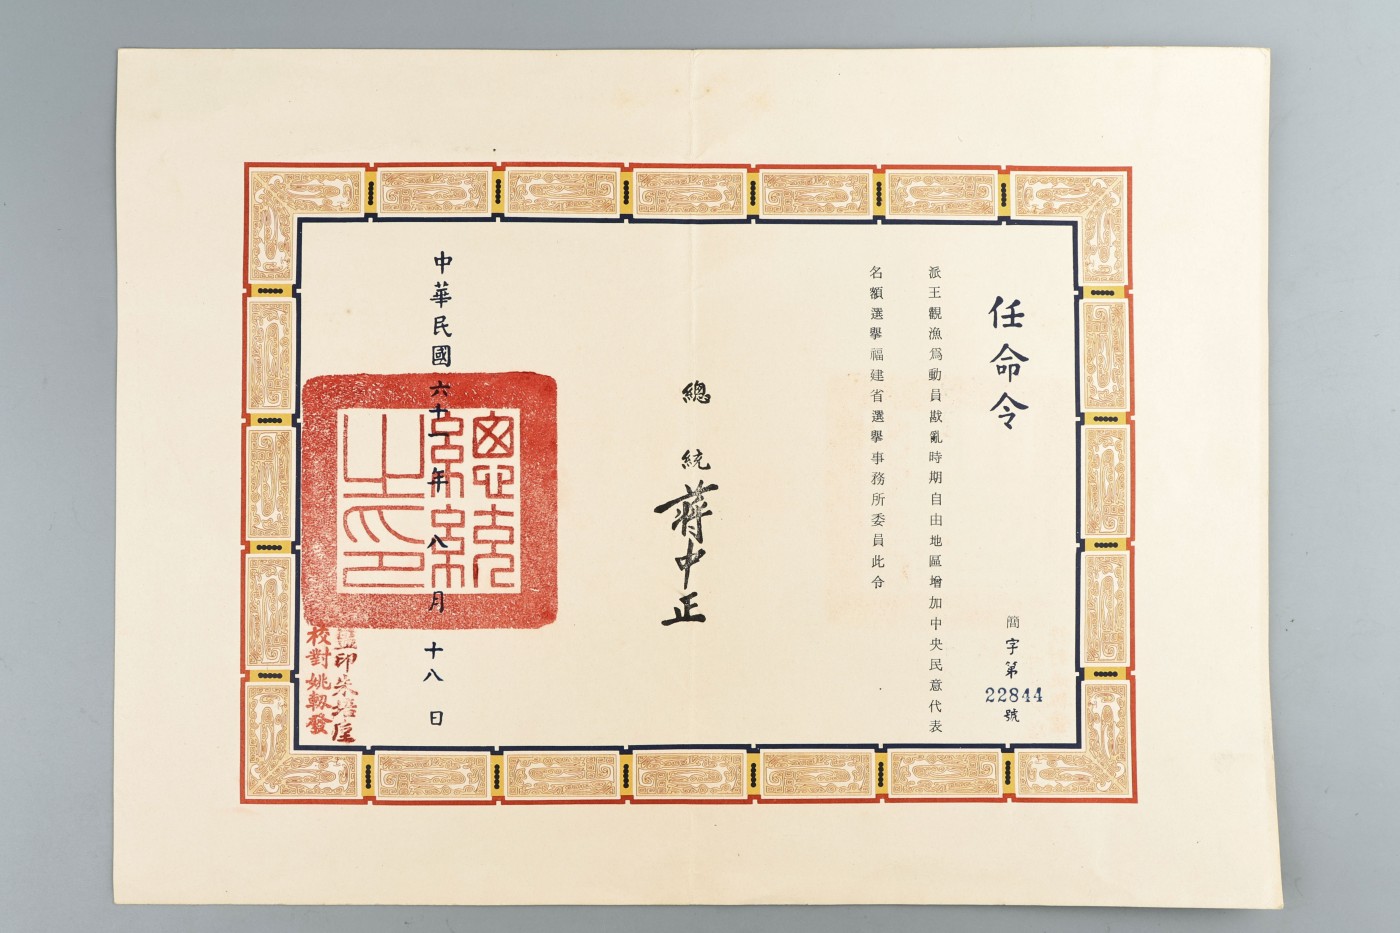 任命令
簡字第22844號
派王觀漁爲動員戡亂時期自由地區增加中央民意代表
名額選舉福建省選舉事務所委員此令
總統蔣中正
中華民國六十一年八月十八日
總統之印
監印朱培垕
校對姚轫發